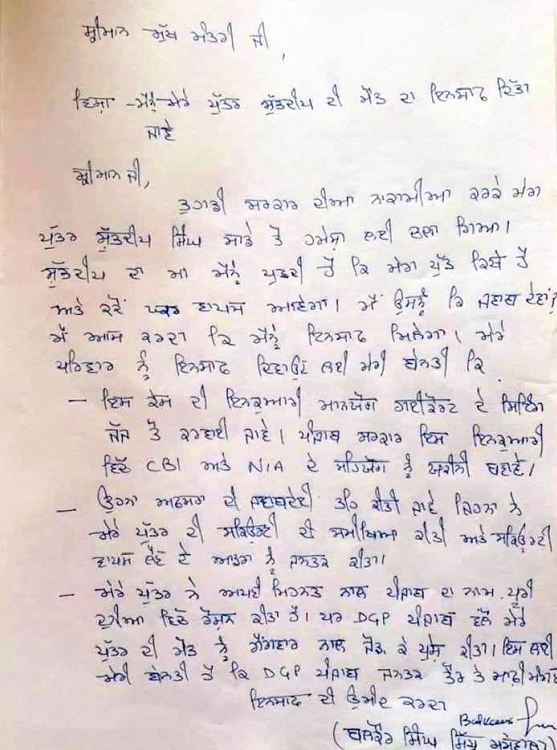 ਸ਼੍ਰੀਮਾਨ ਮੁੱਖ ਮੰਤਰੀ ਜੀ,
ਵਿਸ਼ਾ - ਮੈਨੂੰ ਮੇਰੇ ਪੁੱਤਰ ਸ਼ੁੱਭਦੀਪ ਦੀ ਮੌਤ ਦਾ ਇਨਸਾਫ ਦਿੱਤਾ
ਜਾਵੇ
ਸ਼੍ਰੀਮਾਨ ਜੀ,
ਤੁਹਾਡੀ ਸਰਕਾਰ ਦੀਆ ਨਾਕਾਮੀਆ ਕਰਕੇ ਮੇਰਾ
ਪੁੱਤਰ ਸ਼ੁੱਭਦੀਪ ਸਿੰਘ ਸਾਡੇ ਤੋਂ ਹਮੇਸ਼ਾ ਲਈ ਚਲਾ ਗਿਆ।
ਸ਼ੁੱਭਦੀਪ ਦਾ ਮਾ ਮੈਨੂੰ ਪੁਛਦੀ ਹੈ ਕਿ ਮੇਰਾ ਪੁੱਤ ਕਿਥੇ ਹੈ
ਅਤੇ ਕਦੋਂ ਘਰ ਵਾਪਸ ਆਵੇਗਾ। ਮੈਂ ਉਸਨੂੰ ਕਿ ਜਵਾਬ ਦੇਵਾਂ?
ਮੈਂ ਆਸ ਕਰਦਾ ਕਿ ਮੈਨੂੰ ਇਨਸਾਫ ਮਿਲੇਗਾ। ਮੇਰੇ
ਪਰਿਵਾਰ ਨੂੰ ਇਨਸਾਫ ਦਿਵਾਉਣ ਲਈ ਮੇਰੀ ਬੇਨਤੀ ਕਿ
- ਇਸ ਕੇਸ ਦੀ ਇਨਕੁਆਰੀ ਮਾਨਯੋਗ ਹਾਈਕੋਰਟ ਦੇ ਸਿਟਿੰਗ
ਜੱਜ ਤੋਂ ਕਰਵਾਈ ਜਾਵੇ। ਪੰਜਾਬ ਸਰਕਾਰ ਇਸ ਇਨਕੁਆਰੀ
ਵਿੱਚ CBI ਅਤੇ NIA ਦੇ ਸਹਿਯੋਗ ਨੂੰ ਯਕੀਨੀ ਬਣਾਵੇ।
- ਉਹਨਾ ਅਫਸਰਾ ਦੀ ਜਵਾਬਦੇਹੀ ਤਹਿ ਕੀਤੀ ਜਾਵੇ ਜਿਹਨਾ ਨੇ
ਮੇਰੇ ਪੁੱਤਰ ਦੀ ਸਕਿਉਰਟੀ ਦੀ ਸਮੀਖਿਆ ਕੀਤੀ ਅਤੇ ਸਕਿਉਰਟੀ
ਵਾਪਸ ਲੈਣ ਦੇ ਆਡਰਾ ਨੂੰ ਜਨਤਕ ਕੀਤਾ।
- ਮੇਰੇ ਪੁੱਤਰ ਨੇ ਅਪਣੀ ਮਿਹਨਤ ਨਾਲ ਪੰਜਾਬ ਦਾ ਨਾਮ ਪੂਰੀ
ਦੁਨੀਆ ਵਿੱਚ ਰੌਸ਼ਨ ਕੀਤਾ ਹੈ। ਪਰ DGP ਪੰਜਾਬ ਵੱਲੋਂ ਮੇਰੇ
ਪੁੱਤਰ ਦੀ ਮੌਤ ਨੂੰ ਗੈਂਗਵਾਰ ਨਾਲ ਜੋੜ ਕੇ ਪੇਸ਼ ਕੀਤਾ। ਇਸ ਲਈ
ਮੇਰੀ ਬੇਨਤੀ ਹੈ ਕਿ DGP ਪੰਜਾਬ ਜਨਤਕ ਤੌਰ ਤੇ ਮਾਫੀ ਮੰਗਣ
ਇਨਸਾਫ ਦੀ ਉਮੀਦ ਕਰਦਾ
Balkaur
(ਬਲਕੌਰ ਸਿੰਘ ਸਿੱਧੂ